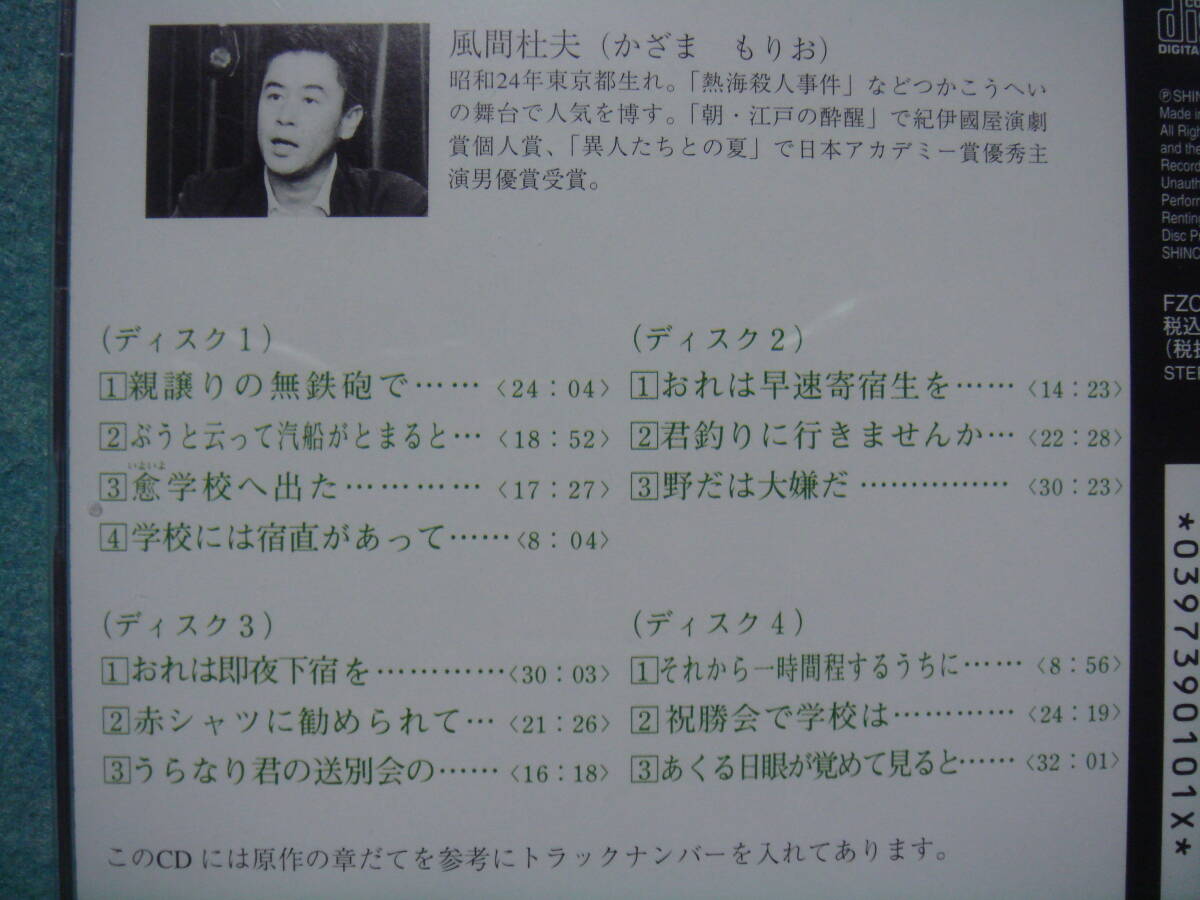 風間杜夫（かざま　もりお）
昭和24年東京都生れ。「熱海殺人事件」などつかこうへい
の舞台で人気を博す。「朝・江戸の酔醒」で紀伊國屋演劇
賞個人賞、「異人たちとの夏」で日本アカデミー賞優秀主
演男優賞受賞。
（ディスク１）
1 親譲りの無鉄砲で…… 〈24：04〉
2 ぶうと云って汽船がとまると… 〈18：52〉
いよいよ
3 愈学校へ出た………… 〈17：27〉
4 学校には宿直があって…… 〈8：04〉
（ディスク２）
1 おれは早速寄宿生を…… 〈14：23〉
2 君釣りに行きませんか… 〈22：28〉
3 野だは大嫌だ …………… 〈30：23〉
（ディスク３）
1 おれは即夜下宿を………… 〈30：03〉
2 赤シャツに勧められて… 〈21：26〉
3 うらなり君の送別会の…… 〈16：18〉
（ディスク４）
1 それから一時間程するうちに…… 〈8：56〉
2 祝勝会で学校は………… 〈24：19〉
3 あくる日眼が覚めて見ると…… 〈32：01〉
このCDには原作の章だてを参考にトラックナンバーを入れてあります。
DIGITA
ⓅSHIN
Made in
All Righ
and the
Record
Unauth
Perform
Renting
Disc Pr
SHINC
FZC
税込
（税抜
STER
*0397390101X*